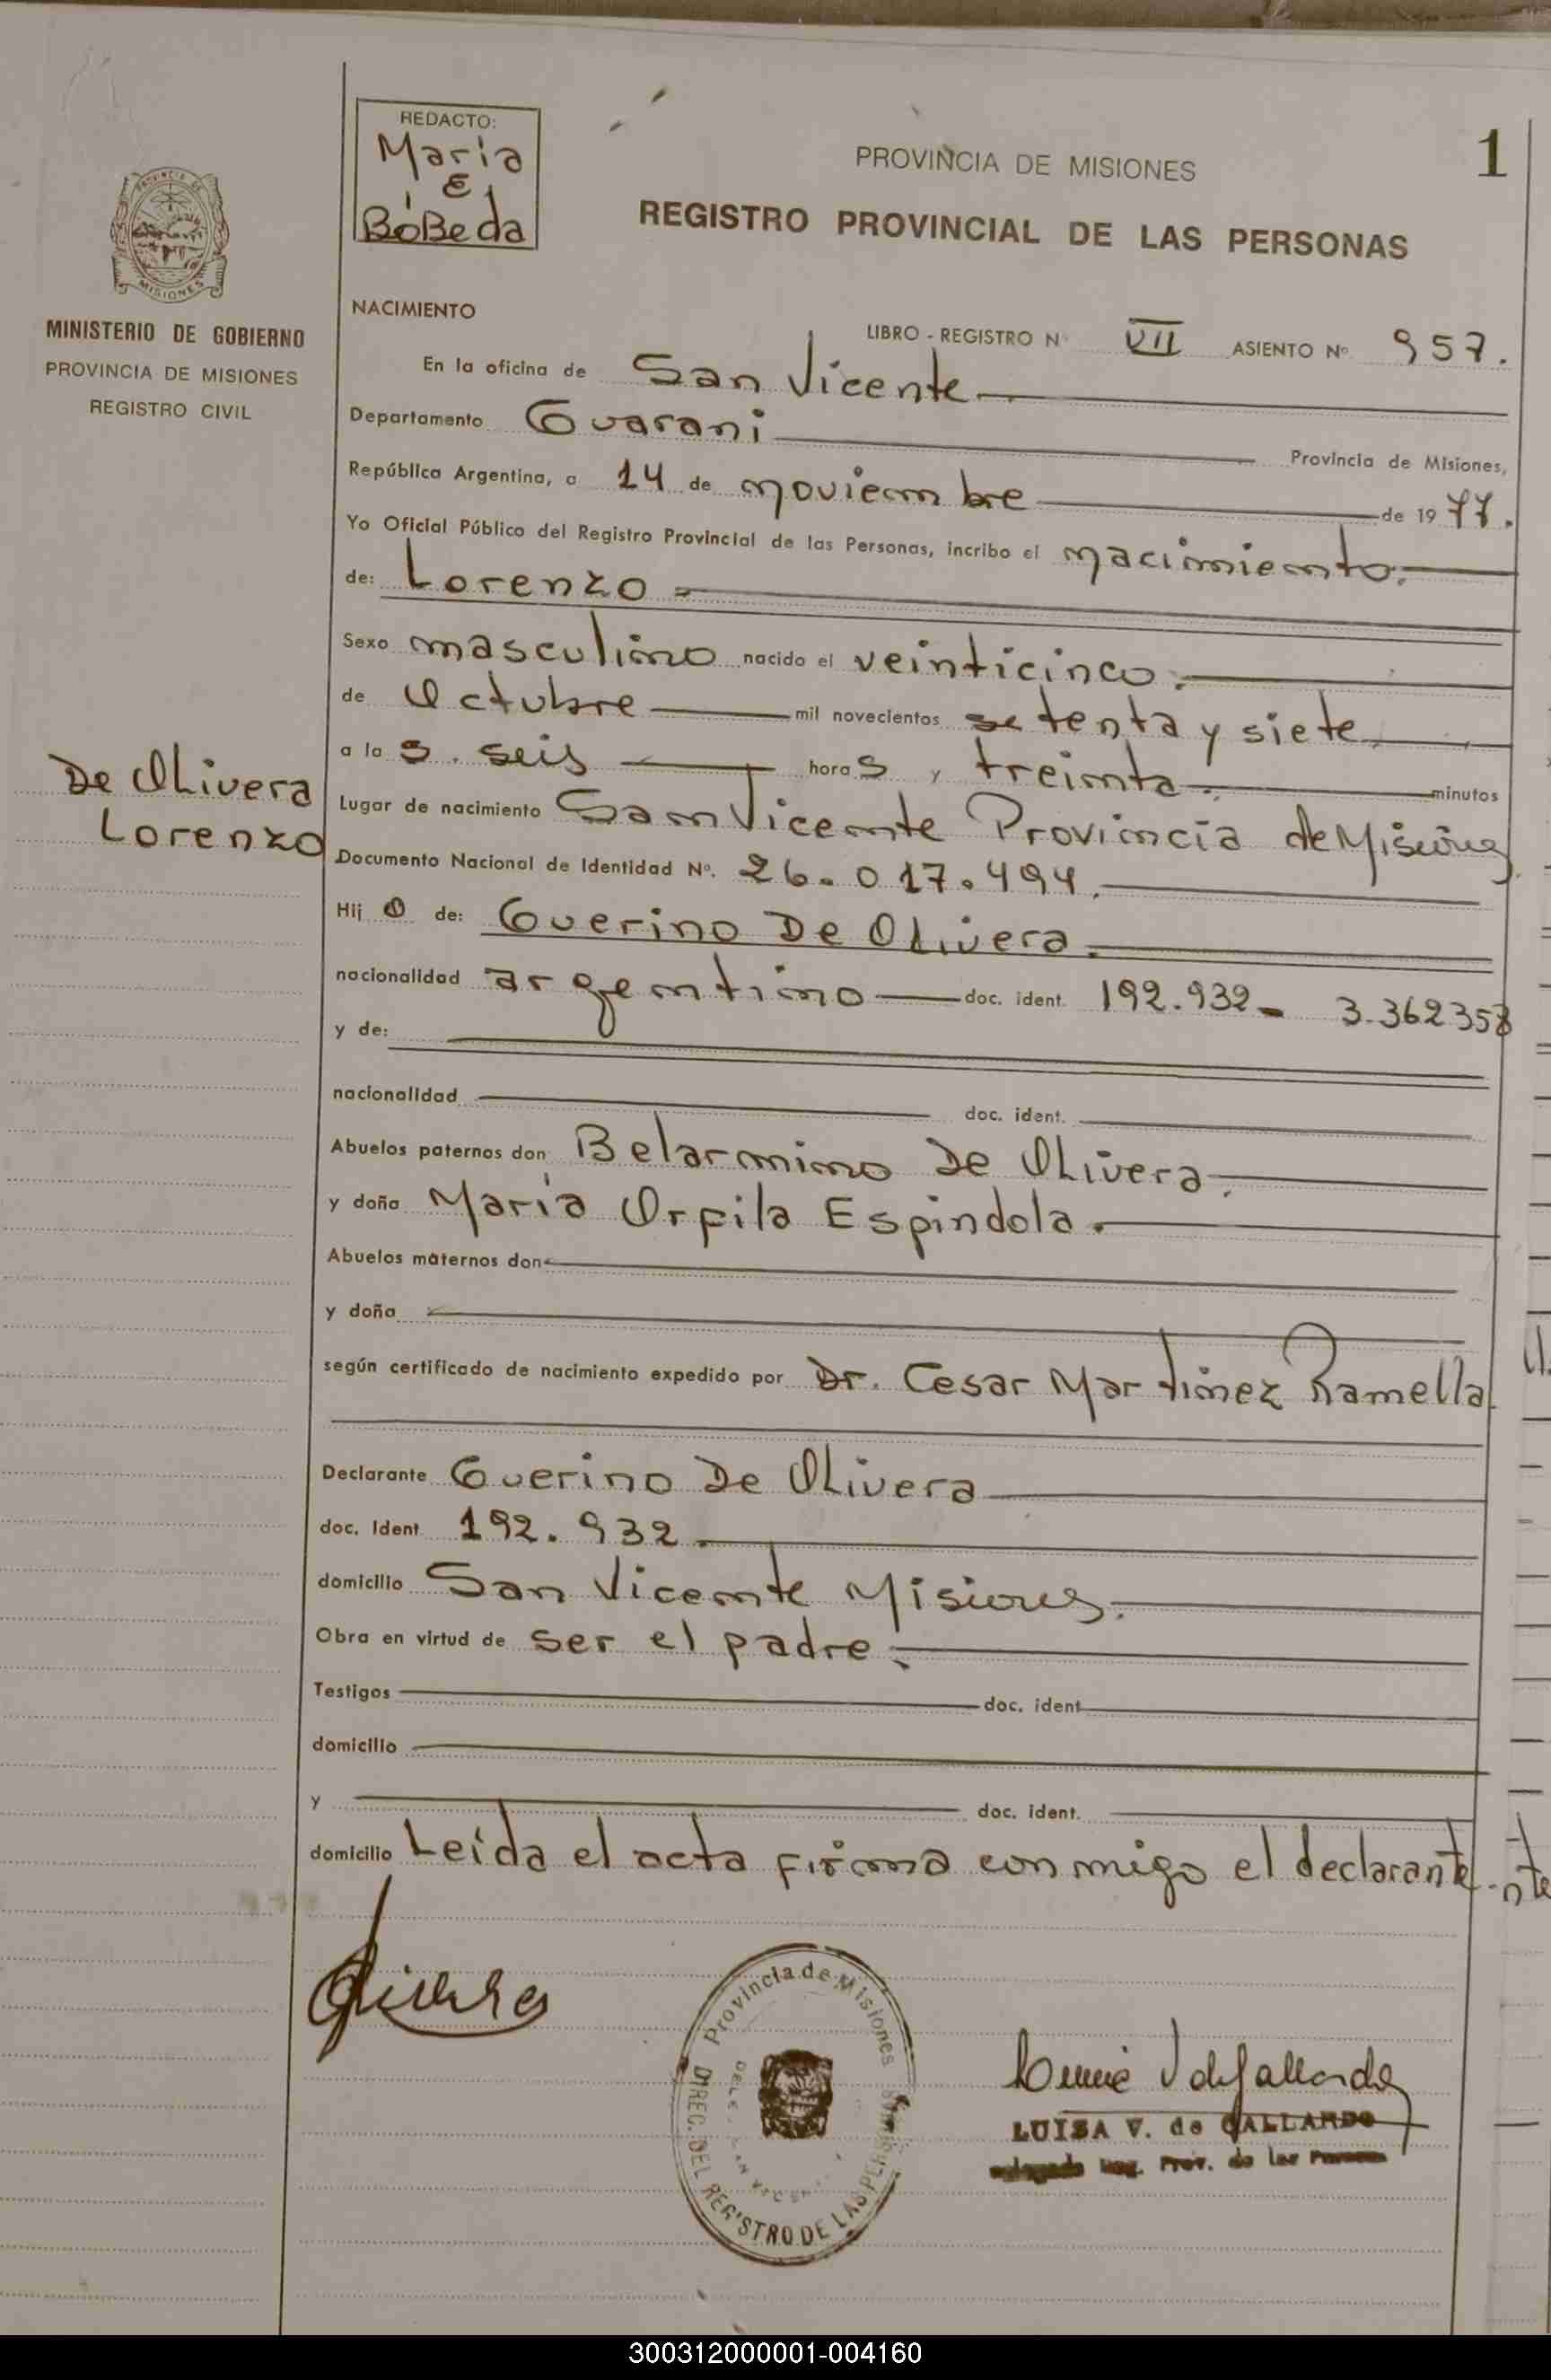 REDACTO:
Maria
E
BóBeda
PROVINCIA DE MISIONES
1
REGISTRO PROVINCIAL DE LAS PERSONAS
MISIONES
MINISTERIO DE GOBIERNO
PROVINCIA DE MISIONES
REGISTRO CIVIL
NACIMIENTO
LIBRO - REGISTRO N° VII ASIENTO N° 957.
En la oficina de San Vicente
Departamento Guarani Provincia de Misiones,
República Argentina, a 14 de noviembre de 1977.
Yo Oficial Público del Registro Provincial de las Personas, incribo el nacimiento.
de: Lorenzo
Sexo masculino nacido el veinticinco.
de Octubre mil novecientos setenta y siete
a las. seis horas y treinta. minutos
De Olivera
Lorenzo
Lugar de nacimiento San Vicente Provincia de Misiones
Documento Nacional de Identidad N°. 26.017.494.
Hijo de: Guerino De Olivera.
nacionalidad argentino doc. ident. 192.932 - 3.362358
y de:
nacionalidad doc. ident.
Abuelos paternos don Belarmino De Olivera.
y doña Maria Orfila Espindola.
Abuelos maternos don
y doña
según certificado de nacimiento expedido por Dr. Cesar Martinez Ramella
Declarante Guerino De Olivera
doc. Ident. 192.932.
domicilio San Vicente Misiones.
Obra en virtud de ser el padre.
Testigos doc. ident
domicilio
y doc. ident.
domicilio Leida el acta firma con migo el declarante.
nte
Olivera
Provincia de Misiones
DIREC. DEL REGISTRO DE LAS PERSONAS
LUISA V. de GALLARDO
Reg. Prov. de las Personas
300312000001-004160